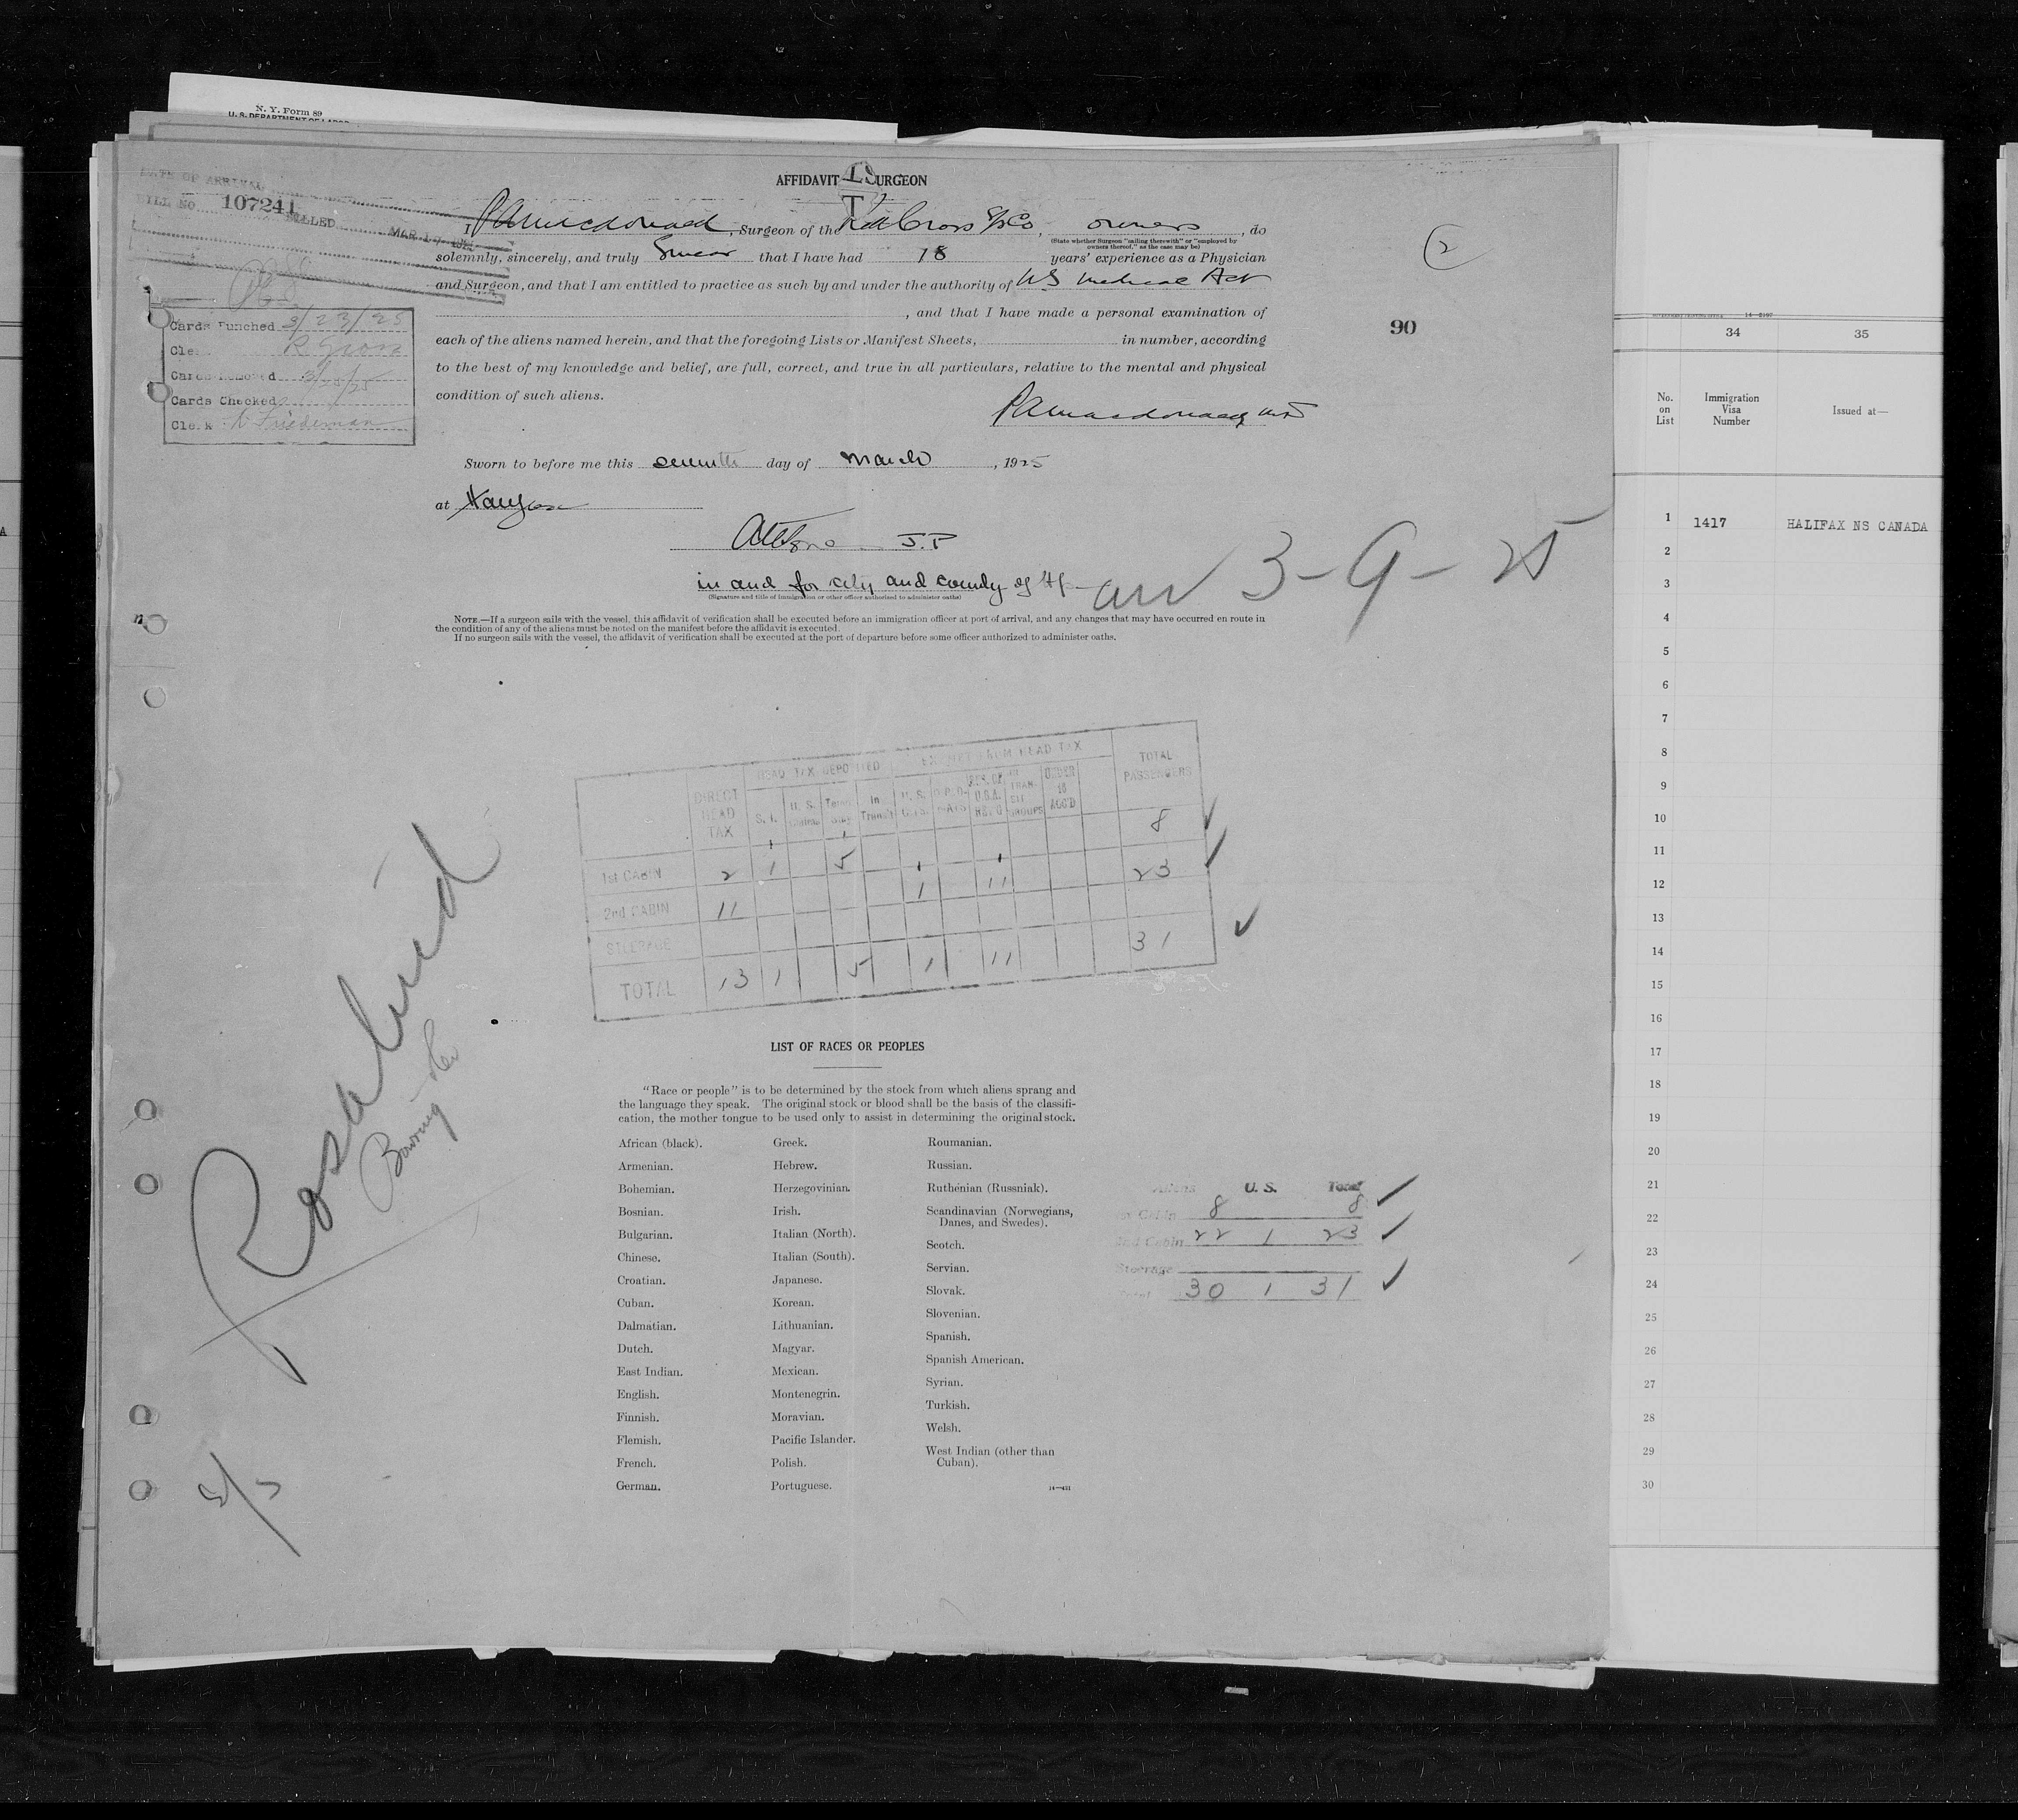 N. Y. Form 89
U. S. DEPARTMENT OF LABOR
DATE OF ARRIVAL
BILL NO 107241
BILLED MAR 17
AFFIDAVIT SURGEON
I, P A Macdonald, Surgeon of the Red Cross S/S Co, owners, do
(State whether Surgeon "sailing therewith" or "employed by owners thereof," as the case may be)
solemnly, sincerely, and truly Swear that I have had 18 years' experience as a Physician
and Surgeon, and that I am entitled to practice as such by and under the authority of NS Medical Act
, and that I have made a personal examination of
each of the aliens named herein, and that the foregoing Lists or Manifest Sheets, in number, according
to the best of my knowledge and belief, are full, correct, and true in all particulars, relative to the mental and physical
condition of such aliens.
P A Macdonald MD
2
90
Cards Punched 3/23/25
Cle
Cards 3/25/25
Cards Checked
Clerk N Friedeman
Sworn to before me this seventh day of March, 1925
at Halifax
J.P
in and for city and county of Hfx
(Signature and title of immigration or other officer authorized to administer oaths)
arr 3-9-25
NOTE.—If a surgeon sails with the vessel, this affidavit of verification shall be executed before an immigration officer at port of arrival, and any changes that may have occurred en route in
the condition of any of the aliens must be noted on the manifest before the affidavit is executed.
If no surgeon sails with the vessel, the affidavit of verification shall be executed at the port of departure before some officer authorized to administer oaths.
HEAD TAX DEPOSITED EXEMPT FROM HEAD TAX TOTAL PASSENGERS
DIRECT HEAD TAX S. I. U. S. In Transit U. S. U.S.A. TRANSIT GROUPS UNDER 16 ACC'D
1st CABIN 2 1 5 8
2nd CABIN 11 1 11 23
STEERAGE
TOTAL 13 1 5 1 11 31
Rosalind
Bowring Co
LIST OF RACES OR PEOPLES
"Race or people" is to be determined by the stock from which aliens sprang and
the language they speak. The original stock or blood shall be the basis of the classifi-
cation, the mother tongue to be used only to assist in determining the original stock.
African (black).
Armenian.
Bohemian.
Bosnian.
Bulgarian.
Chinese.
Croatian.
Cuban.
Dalmatian.
Dutch.
East Indian.
English.
Finnish.
Flemish.
French.
German.
Greek.
Hebrew.
Herzegovinian.
Irish.
Italian (North).
Italian (South).
Japanese.
Korean.
Lithuanian.
Magyar.
Mexican.
Montenegrin.
Moravian.
Pacific Islander.
Polish.
Portuguese.
Roumanian.
Russian.
Ruthenian (Russniak).
Scandinavian (Norwegians,
Danes, and Swedes).
Scotch.
Servian.
Slovak.
Slovenian.
Spanish.
Spanish American.
Syrian.
Turkish.
Welsh.
West Indian (other than
Cuban).
14—431
Aliens U. S. Total
1st Cabin 8 8
2nd Cabin 22 1 23
Steerage
Total 30 1 31
34 35
No. on List
Immigration Visa Number
Issued at—
1 1417 HALIFAX NS CANADA
2
3
4
5
6
7
8
9
10
11
12
13
14
15
16
17
18
19
20
21
22
23
24
25
26
27
28
29
30